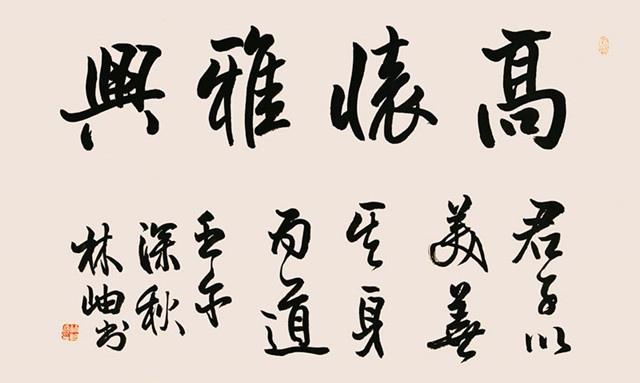 高懷雅興
君子以
美善
其身
而道
壬午
深秋
林岫书